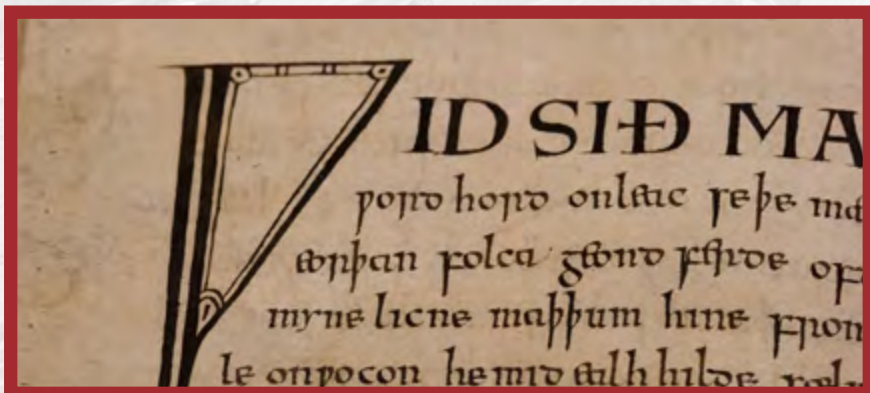 ǷID SIÐ MA
ƿord hord onleac seþe mæ
eorþan folca geond ferde of
myne licne maþþum hine from
le onƿocon hemid ealh hilde fæl